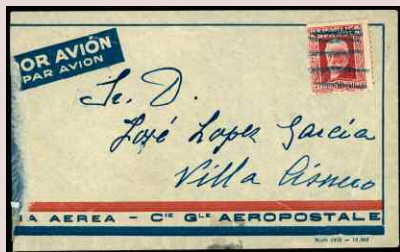 POR AVIÓN
PAR AVION
REPUBLICA
Sr. D.
José Lopez García
Villa Cisnero
IA AEREA - CIE GLE AEROPOSTALE